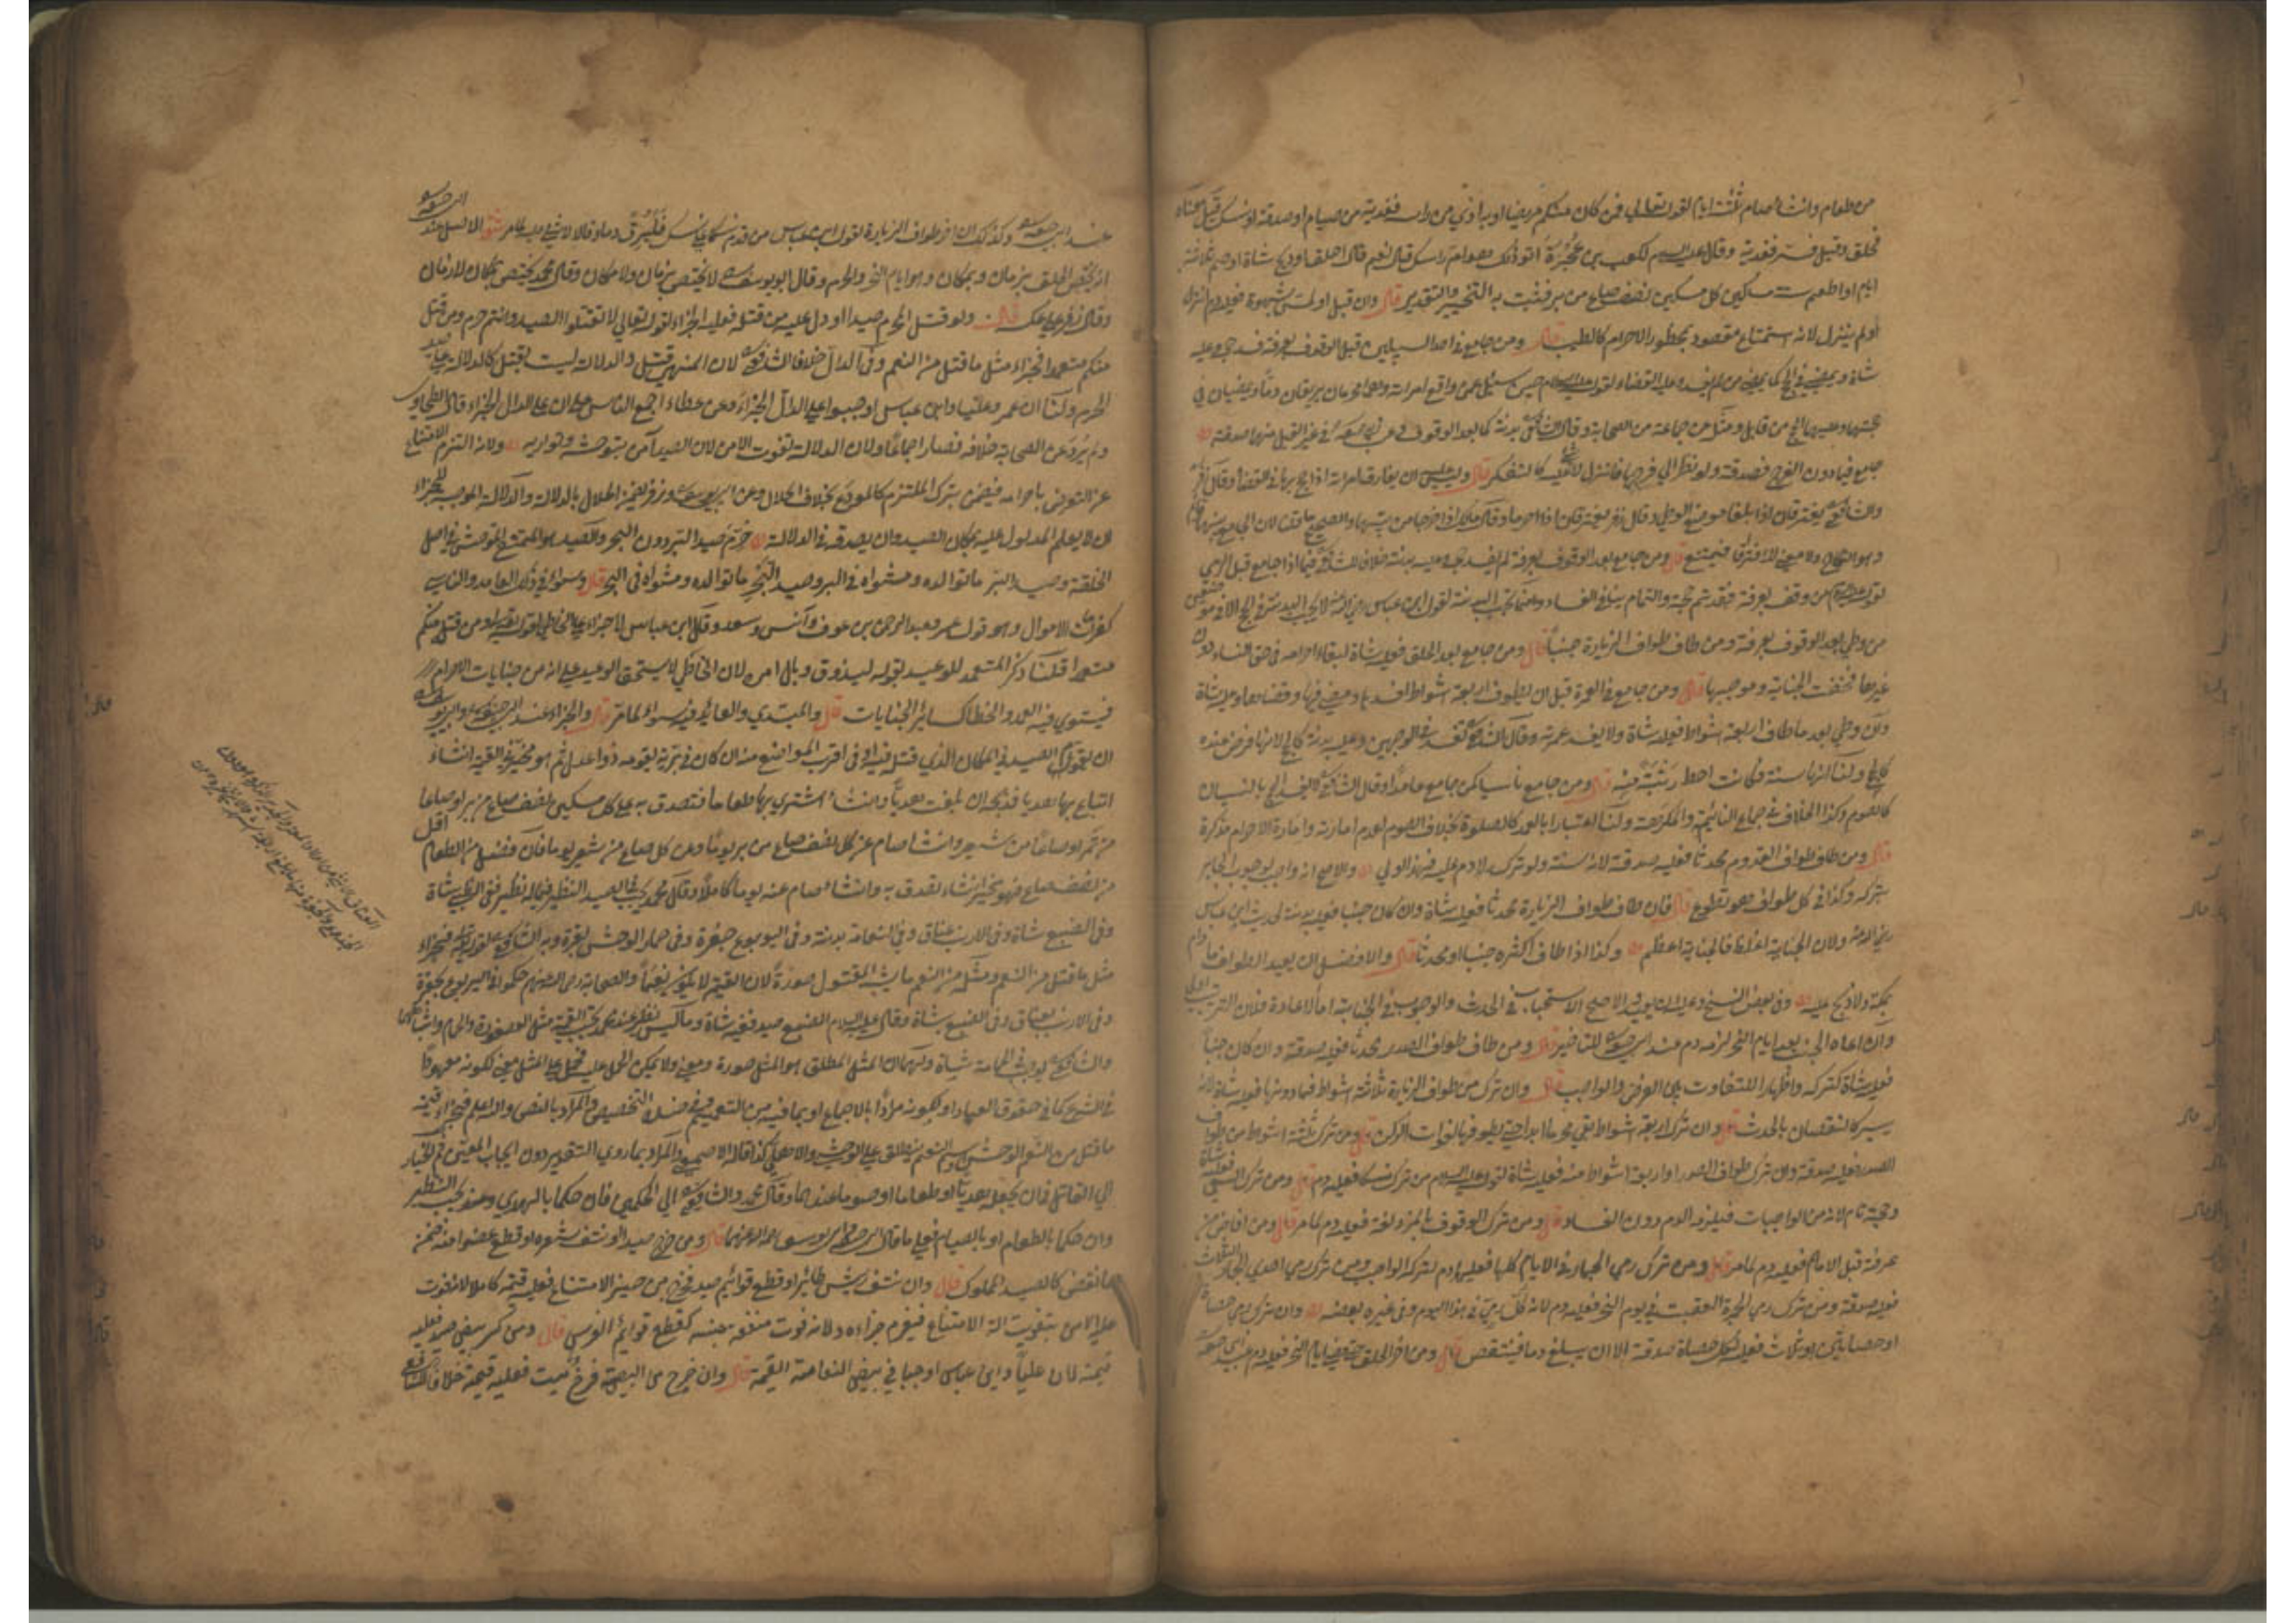 من طعام وان شاء صام ثلثة ايام لقوله تعالى فمن كان منكم مريضا او به اذى من راسه ففدية من صيام او صدقة او نسك قيل معناه
فحلق وقيل فستر ففدية وقال عليه السلام لكعب بن عجرة اتوذيك هوام راسك قال نعم قال احلق واذبح شاة او صم ثلاثة
ايام او اطعم ستة مساكين كل مسكين نصف صاع من بر فثبت به التخيير والتقدير قال وان قبل او لمس بشهوة فعليه دم انزل
او لم ينزل لانه استمتاع مقصود محظور الاحرام كالطيب قال ومن جامع في احد السبيلين قبل الوقوف بعرفة فسد حجه وعليه
شاة ويمضي في الحج كما يمضي من لم يفسده وعليه القضاء لقوله عليه السلام حين سئل عمن واقع امراته وهما محرمان يريقان دما ويمضيان في
حجتهما وعليهما الحج من قابل ومثله عن جماعة من الصحابة وقال الشافعي بدنة كما بعد الوقوف
جامع فيما دون الفرج فصدقة ولو نظر الى فرجها فانزل كالتفكر قال وليس عليه ان يفارق امراته اذا حج بها في القضاء وقال زفر
والشافعي يفترقان اذا بلغا موضع الوطي وقال زفر يفترقان اذا احرما وقال مالك اذا خرجا من بيتهما والصحيح ما قلنا لان الجامع بينهما
وهو النكاح ولا معنى للافتراق فيمتنع قال ومن جامع بعد الوقوف بعرفة لم يفسد حجه وعليه بدنة خلافا للشافعي فيما اذا جامع قبل الرمي
لقوله عليه السلام من وقف بعرفة فقد تم حجه والتمام ينافي الفساد وانما تجب البدنة لقول ابن عباس رضي الله عنه لا يجب البدنة في الحج الا في موضعين
من وطي بعد الوقوف بعرفة ومن طاف طواف الزيارة جنبا قال ومن جامع بعد الحلق فعليه شاة لبقاء احرامه في حق النساء دون
غيرها فخفت الجناية وموجبها قال ومن جامع في العمرة قبل ان يطوف اربعة اشواط افسدها ومضى فيها وقضاها وعليه شاة
وان وطي بعد ما طاف اربعة اشواط فعليه شاة ولا يفسد عمرته وقال الشافعي تفسد في الوجهين وعليه بدنة كالحج لانها فرض عنده
كالحج ولنا انها سنة فكانت احط رتبة منه قال ومن جامع ناسيا كمن جامع عامدا وقال الشافعي لا يفسد الحج بالنسيان
كالصوم وكذا الخلاف في جماع النائمة والمكرهة ولنا اعتبارا بالعود كالصلوة بخلاف الصوم لعدم امارته وامارة الاحرام مذكرة
قال ومن طاف طواف القدوم محدثا فعليه صدقة لانه سنة ولو ترك لا دم عليه فهذا اولى والاصح انه واجب لوجوب الجابر
بتركه وكذا في كل طواف هو تطوع قال فان طاف طواف الزيارة محدثا فعليه شاة وان كان جنبا فعليه بدنة لحديث ابن عباس
رضي الله عنه ولان الجناية اغلظ فالجناية اعظم وكذا اذا طاف اكثره جنبا او محدثا قال والافضل ان يعيد الطواف ما دام
بمكة ولا ذبح عليه وفي بعض النسخ وعليه ان يعيد والاصح الاستحباب في الحدث والوجوب في الجنابة
وان اعاده الجنب بعد ايام النحر لزمه دم عند ابي حنيفة للتاخير قال ومن طاف طواف الصدر محدثا فعليه صدقة وان كان جنبا
فعليه شاة كتركه واظهارا للتفاوت بين الفرض والواجب قال وان ترك من طواف الزيارة ثلاثة اشواط فما دونها فعليه شاة لانه
يسير كالنقصان بالحدث قال وان ترك اربعة اشواط بقي محرما ابدا حتى يطوف لفوات الركن قال ومن ترك ثلثة اشواط من طواف
الصدر فعليه صدقة وان ترك طواف الصدر او اربعة اشواط منه فعليه شاة لقوله عليه السلام من ترك نسكا فعليه دم قال ومن ترك السعي فعليه شاة
وحجه تام لانه من الواجبات فيلزمه الدم دون الفساد قال ومن ترك الوقوف بالمزدلفة فعليه دم لما مر قال ومن افاض من
عرفة قبل الامام فعليه دم لما مر قال ومن ترك رمي الجمار في الايام كلها فعليه دم لتركه الواجب ومن ترك رمي احدى الجمار الثلاث
فعليه صدقة ومن ترك رمي الجمرة العقبة في يوم النحر فعليه دم لانه كل رمي في هذا اليوم وفي غيره بعضه وان ترك رمي حصاة
او حصاتين او ثلاث فعليه لكل حصاة صدقة الا ان يبلغ دما فينتقص قال ومن اخر الحلق حتى مضى ايام النحر فعليه دم عند ابي حنيفة
عند ابي حنيفة وكذلك ان اخر طواف الزيارة لقول ابن عباس من قدم نسكا على نسك فليرق دما وقالا لا شيء عليه لما مر
ان يختص الحلق بزمان وبمكان وهو ايام النحر والحرم وقال ابو يوسف لا يختص بزمان ولا مكان وقال محمد يختص بمكان لا زمان
وقال زفر على عكسه قال ولو قتل المحرم صيدا او دل عليه من قتله فعليه الجزاء لقوله تعالى لا تقتلوا الصيد وانتم حرم ومن قتله
منكم متعمدا فجزاء مثل ما قتل من النعم وفي الدال خلاف الشافعي لان المنهي قتل والدلالة ليست بقتل كالدلالة على صيد
الحرم ولنا ان عمر وعليا وابن عباس اوجبوا على الدال الجزاء وعن عطاء اجمع الناس على ان على الدال الجزاء قال الطحاوي
ولم يرو عن الصحابة خلافه فصار اجماعا ولان الدلالة تفوت الامن لان الصيد آمن بتوحشه وتواريه ولانه التزم الامتناع
عن التعرض باحرامه فيضمن بترك الملتزم كالمودع بخلاف الحلال وعن ابي يوسف وزفر يضمن الحلال بالدلالة والدلالة الموجبة للجزاء
ان لا يعلم المدلول عليه بمكان الصيد وان يصدقه في الدلالة حرم صيد البر دون البحر والصيد هو الممتنع المتوحش في اصل
الخلقة وصيد البر ما توالده ومثواه في البر وصيد البحر ما توالده ومثواه في البحر قال وسواء في ذلك العامد والناسي
كغرامات الاموال وهو قول عمر وعبد الرحمن بن عوف وانس وسعد وقال ابن عباس لا جزاء على الخاطي لقوله تعالى ومن قتله منكم
متعمدا قلنا ذكر المتعمد للوعيد لقوله ليذوق وبال امره لان الخاطي لا يستحق الوعيد على انه من جنايات الاحرام
فيستوي فيه العمد والخطا كسائر الجنايات قال والمبتدي والعائد فيه سواء لما مر قال والجزاء عند ابي حنيفة وابي يوسف
ان يقوم الصيد في المكان الذي قتله فيه او في اقرب المواضع منه ان كان في برية يقومه ذوا عدل ثم هو مخير في القيمة ان شاء
ابتاع بها هديا فذبحه ان بلغت هديا وان شاء اشترى بها طعاما فتصدق به على كل مسكين نصف صاع من بر او صاعا
من تمر او صاعا من شعير وان شاء صام عن كل نصف صاع من بر يوما وعن كل صاع من شعير يوما فان فضل من الطعام اقل
من نصف صاع فهو مخير ان شاء تصدق به وان شاء صام عنه يوما كاملا وقال محمد يجب في الصيد النظير فيما له نظير ففي الظبي شاة
وفي الضبع شاة وفي الارنب عناق وفي النعامة بدنة وفي اليربوع جفرة وفي حمار الوحش بقرة وبه الشافعي لقوله تعالى فجزاء
مثل ما قتل من النعم ومثله من النعم ما يشبه المقتول صورة لان القيمة لا يكون نعما والصحابة رضي الله عنهم حكموا في اليربوع بجفرة
وفي الارنب بعناق وفي الضبع بشاة وقال عليه السلام الضبع صيد ففيه شاة وما ليس له نظير عند محمد يجب القيمة مثل العصفورة والحمام واشباهها
والشافعي يوجب في الحمامة شاة ولهما ان المثل المطلق هو المثل صورة ومعنى ولا يمكن الحمل عليه فحمل على المثل معنى لكونه معهودا
في الشرع كما في حقوق العباد او لكونه مرادا بالاجماع او بما فيه من التعميم وفي ضده التخصيص والمراد بالنص والله اعلم فجزاء قيمة
ما قتل من النعم الوحشي واسم النعم ينطلق على الوحشي والاهلي كذا قاله الاصمعي والمراد بما روي التقدير دون ايجاب المعين ثم الخيار
الى القاتل في ان يجعله هديا او طعاما او صوما عندهما وقال محمد والشافعي الى الحكمين فان حكما بالهدي وعنده يجب النظير
وان حكما بالطعام او بالصيام فعلى ما قال ابو حنيفة وابو يوسف رحمة الله عليهما قال ومن جرح صيدا او نتف شعره او قطع عضوا منه ضمن
ما نقص كالصيد المملوك قال وان نتف ريش طائر او قطع قوائم صيد فخرج من حيز الامتناع فعليه قيمته كاملا لانه فوت
عليه الامن بتفويت الة الامتناع فيغرم جزاءه ولانه فوت منفعة جنسه كقطع قوائم الفرس قال ومن كسر بيض صيد فعليه
قيمته لان عليا وابن عباس اوجبا في بيض النعامة القيمة قال وان خرج من البيض فرخ ميت فعليه قيمته خلافا للشافعي